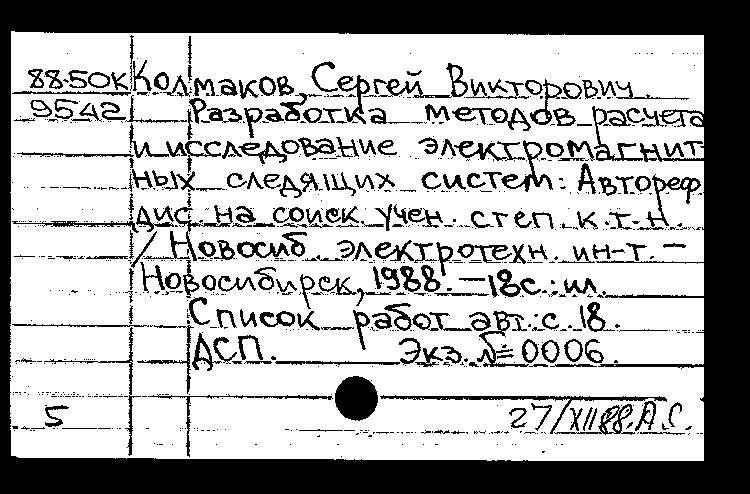 88-50К Колмаков, Сергей Викторович.
9542 Разработка методов расчета
и исследование электромагнит
ных следящих систем: Автореф
дис. на соиск. учен. степ. к.т.н.
/ Новосиб. электротехн. ин-т. —
Новосибирск, 1988. — 18с.: ил.
Список работ авт.: с. 18.
ДСП. Экз. № 0006.
5 27/XII 88. А.С.